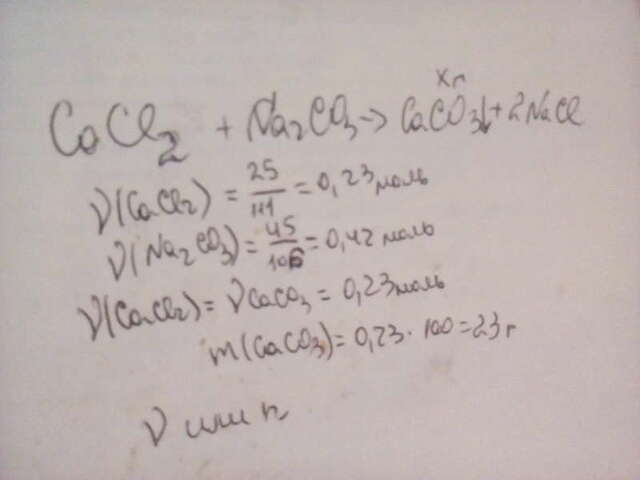 Xг
CaCl₂ + Na₂CO₃ → CaCO₃↓ + 2NaCl
ν(CaCl₂) = 25/111 = 0,23 моль
ν(Na₂CO₃) = 45/106 = 0,42 моль
ν(CaCl₂) = νCaCO₃ = 0,23 моль
m(CaCO₃) = 0,23 · 100 = 23 г
ν или n